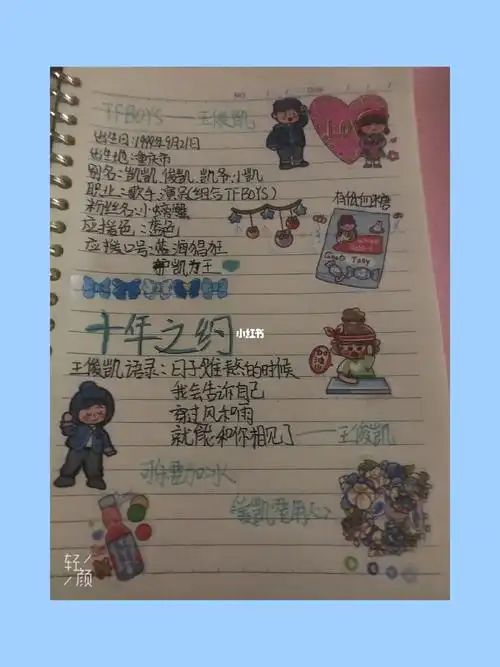 TFBOYS——王俊凯
出生日:1999年9月21日
出生地:重庆市
别名:凯凯、俊凯、凯爷、小凯
职业:歌手、演员(组合TFBOYS)
粉丝名:小螃蟹
应援色:蓝色
应援口号:蓝海猖狂
护凯为王
有低何糖
十年之约
小红书
王俊凯语录:日子难熬的时候
我会告诉自己
穿过风和雨
就能和你相见了——王俊凯
可乐要加冰
爱凯要用心
轻颜